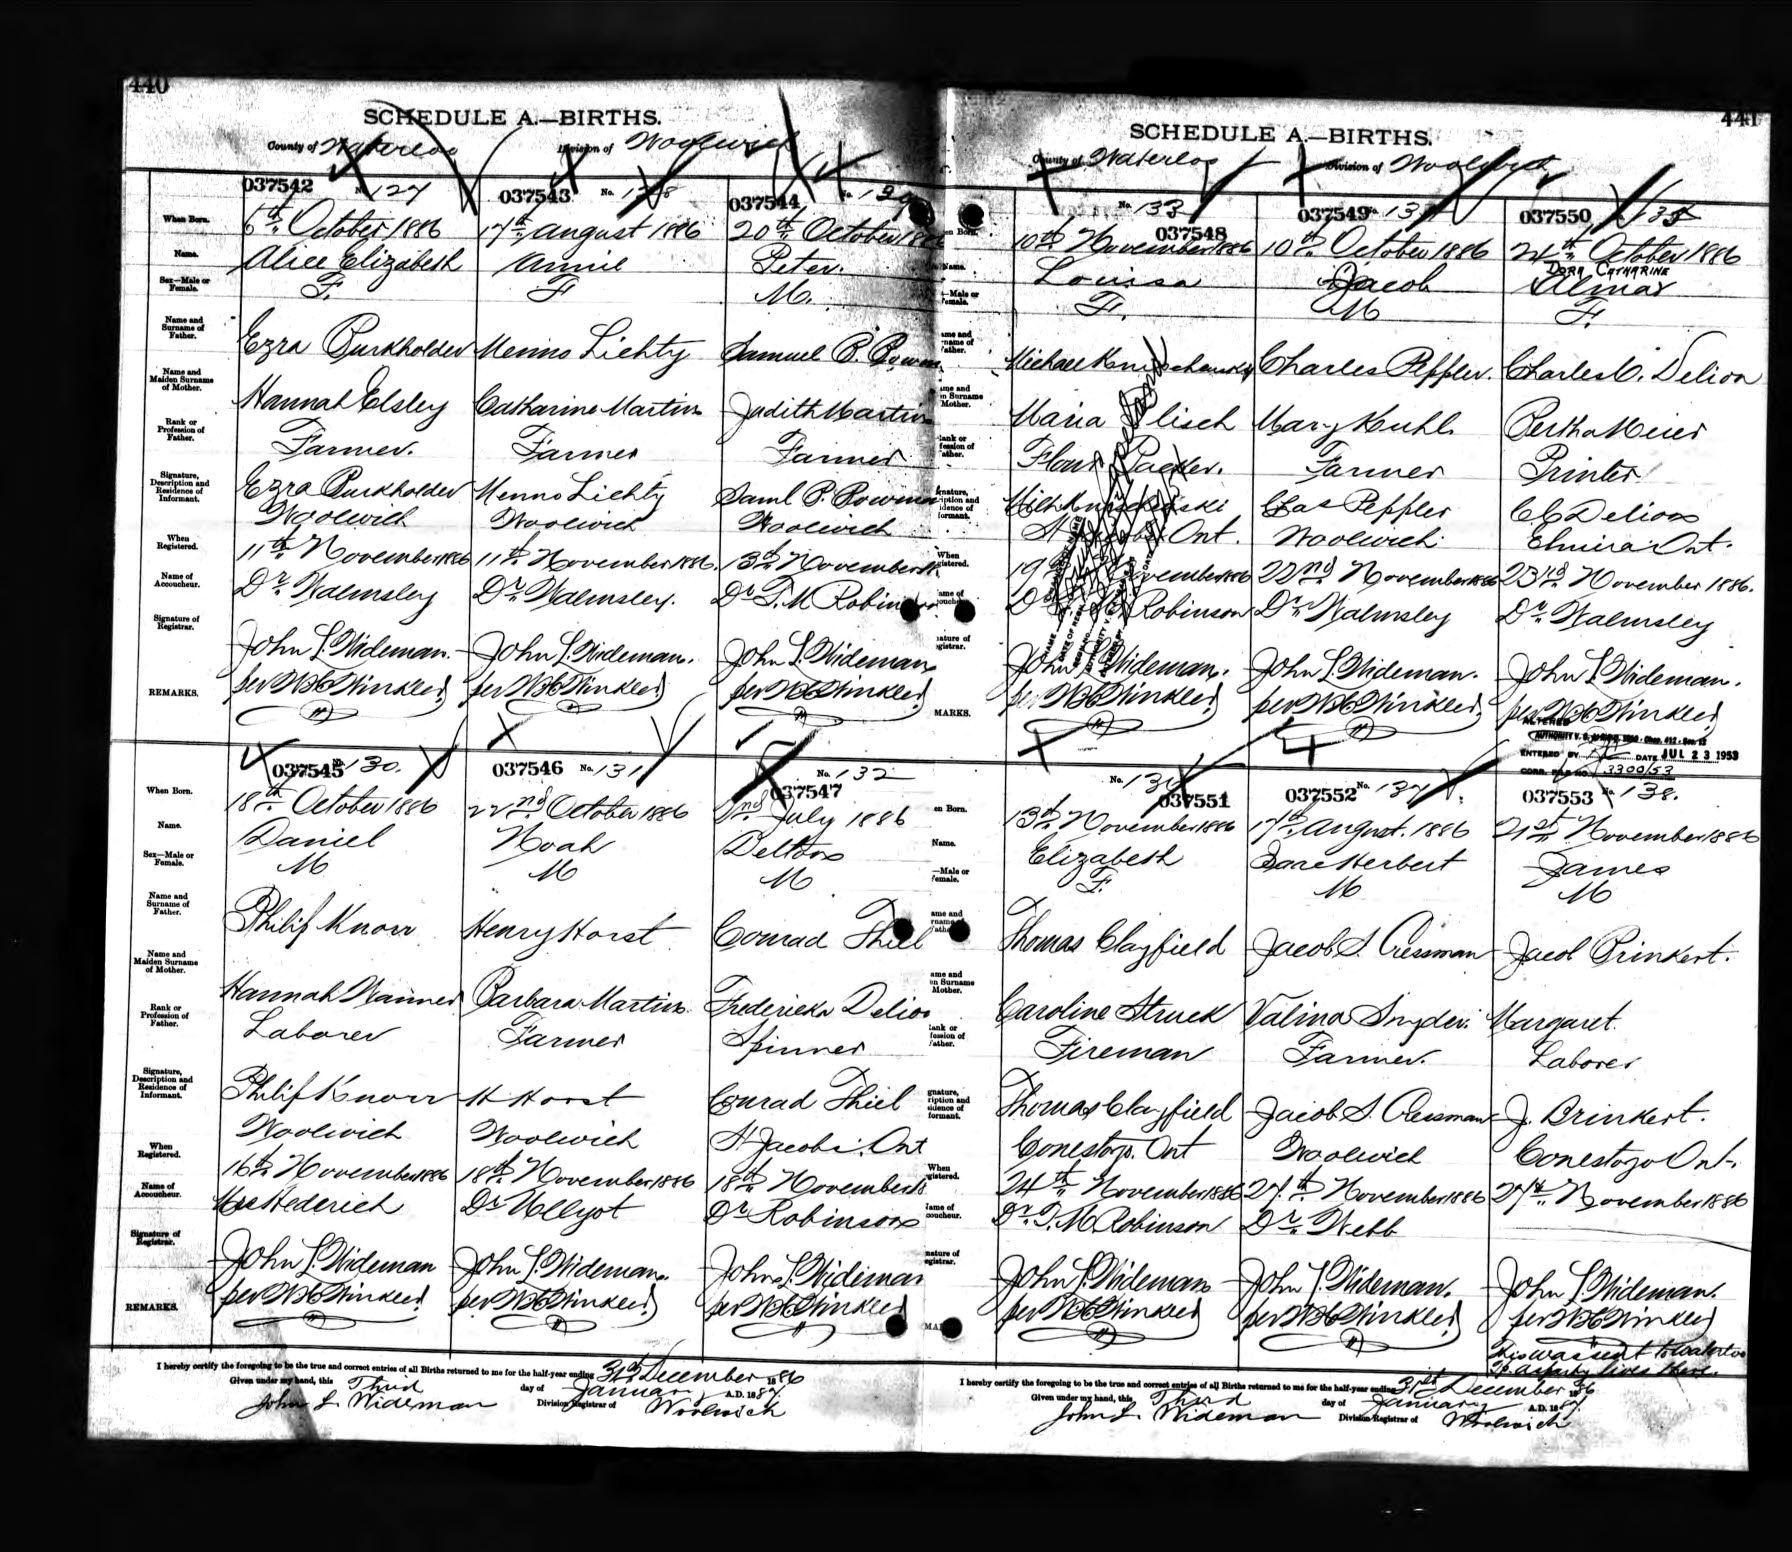 440
SCHEDULE A.—BIRTHS.
County of Waterloo Division of Woolwich
037542 No. 127
037543 No. 128
037544 No. 129
When Born. 6th October 1886 17th August 1886 20th October
Name. Alice Elizabeth Annie Peter
Sex—Male or Female. F. F M.
Name and Surname of Father. Ezra Burkholder Menno Lichty Samuel B. Bowman
Name and Maiden Surname of Mother. Hannah Elsley Catharine Martin Judith Martin
Rank or Profession of Father. Farmer. Farmer Farmer
Signature, Description and Residence of Informant. Ezra Burkholder Menno Lichty Saml B. Bowman
Woolwich Woolwich Woolwich
When Registered. 11th November 1886 11th November 1886. 13th November
Name of Accoucheur. Dr. Walmsley Dr. Walmsley. Dr. T. M Robinson
Signature of Registrar. John L. Wideman. John L. Wideman. John L. Wideman
REMARKS. per W H Winkler per W H Winkler per W H Winkler
037545 No. 130.
037546 No. 131
037547 No. 132
When Born. 18th October 1886 22nd October 1886 2nd July 1886
Name. Daniel Noah Delton
Sex—Male or Female. M M M
Name and Surname of Father. Philip Knorr Henry Horst Conrad Thiel
Name and Maiden Surname of Mother. Hannah Wanner Barbara Martin Fredericka Delion
Rank or Profession of Father. Laborer Farmer Spinner
Signature, Description and Residence of Informant. Philip Knorr H Horst Conrad Thiel
Woolwich Woolwich St Jacobs. Ont
When Registered. 16th November 1886 18th November 1886 18th November
Name of Accoucheur. Mrs Hederich Dr Ullyot Dr Robinson
Signature of Registrar. John L. Wideman John L. Wideman. John L. Wideman
REMARKS. per W H Winkler per W H Winkler per W H Winkler
I hereby certify the foregoing to be the true and correct entries of all Births returned to me for the half-year ending 31st December 1886
Given under my hand, this Third day of January A.D. 1887.
John L. Wideman Division Registrar of Woolwich
441
SCHEDULE A.—BIRTHS.
County of Waterloo Division of Woolwich
No. 133 037548
037549 No. 134
037550 No. 135
10th November 1886 10th October 1886 24th October 1886
DORA CATHARINE
Louisa Jacob Elmar
F. M F.
Michael Charles Peffler. Charles C. Delion
Maria Mary Kuhl Bertha Meier
Flour Packer. Farmer Printer
Chas Peffler C C Delion
Ont. Woolwich Elmira Ont.
19th November 1886 22nd November 1886 23rd November 1886.
Dr. Robinson Dr. Walmsley Dr. Walmsley
John L. Wideman. John L. Wideman. John L. Wideman.
per W H Winkler per W H Winkler per W H Winkler
ALTERED
ENTERED BY DATE JUL 23 1953
CORR. FILE NO. 3300/53
No. 136 037551
037552 No. 137
037553 No. 138.
13th November 1886 17th August. 1886 21st November 1886
Elizabeth Herbert James
F. M M
Thomas Clayfield Jacob S. Cressman Jacob Brinkert.
Caroline Struck Valina Snyder Margaret
Fireman Farmer. Laborer
Thomas Clayfield Jacob S. Cressman J. Brinkert.
Conestogo. Ont Woolwich Conestogo Ont.
24th November 1886 27th November 1886 27th November 1886
Dr. T. M Robinson Dr. Webb
John L. Wideman John L. Wideman. John L. Wideman.
per W H Winkler per W H Winkler per W H Winkler
This was sent to Waterloo
lives there.
I hereby certify the foregoing to be the true and correct entries of all Births returned to me for the half-year ending 31st December 1886
Given under my hand, this Third day of January A.D. 1887.
John L. Wideman Division Registrar of Woolwich